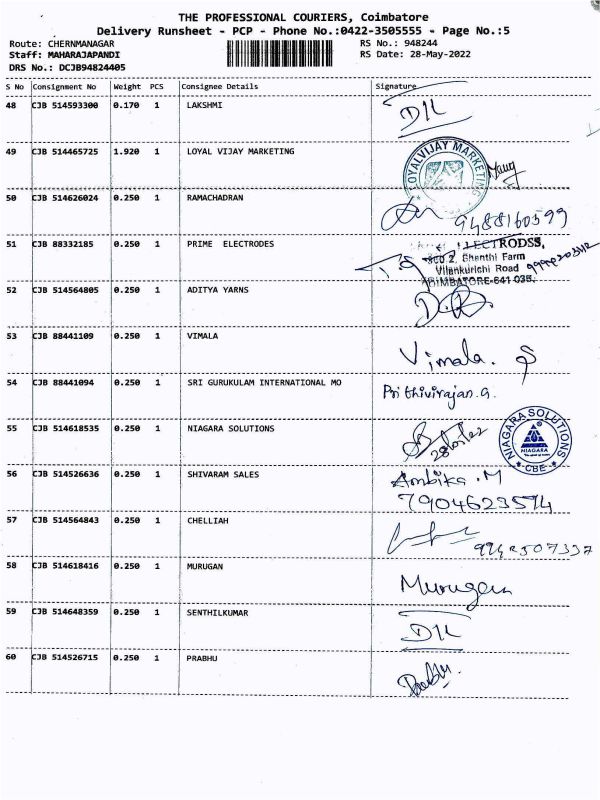 THE PROFESSIONAL COURIERS, Coimbatore
Delivery Runsheet - PCP - Phone No.:0422-3505555 - Page No.:5
Route: CHERNMANAGAR RS No.: 948244
Staff: MAHARAJAPANDI RS Date: 28-May-2022
DRS No.: DCJB94824405
S No Consignment No Weight PCS Consignee Details Signature
48 CJB 514593300 0.170 1 LAKSHMI
49 CJB 514465725 1.920 1 LOYAL VIJAY MARKETING
LOYALVIJAY MARKETING
50 CJB 514626024 0.250 1 RAMACHADRAN
9488160599
51 CJB 88332185 0.250 1 PRIME ELECTRODES
Shanthi Farm
Vilankurichi Road
COIMBATORE-641 035.
52 CJB 514564805 0.250 1 ADITYA YARNS
53 CJB 88441109 0.250 1 VIMALA
Vimala.
54 CJB 88441094 0.250 1 SRI GURUKULAM INTERNATIONAL MO
Prithivirajan.G.
55 CJB 514618535 0.250 1 NIAGARA SOLUTIONS
NIAGARA SOLUTIONS
NIAGARA
CBE
56 CJB 514526636 0.250 1 SHIVARAM SALES
Ambika.M
7904623574
57 CJB 514564843 0.250 1 CHELLIAH
9942507337
58 CJB 514618416 0.250 1 MURUGAN
Murugan
59 CJB 514648359 0.250 1 SENTHILKUMAR
60 CJB 514526715 0.250 1 PRABHU